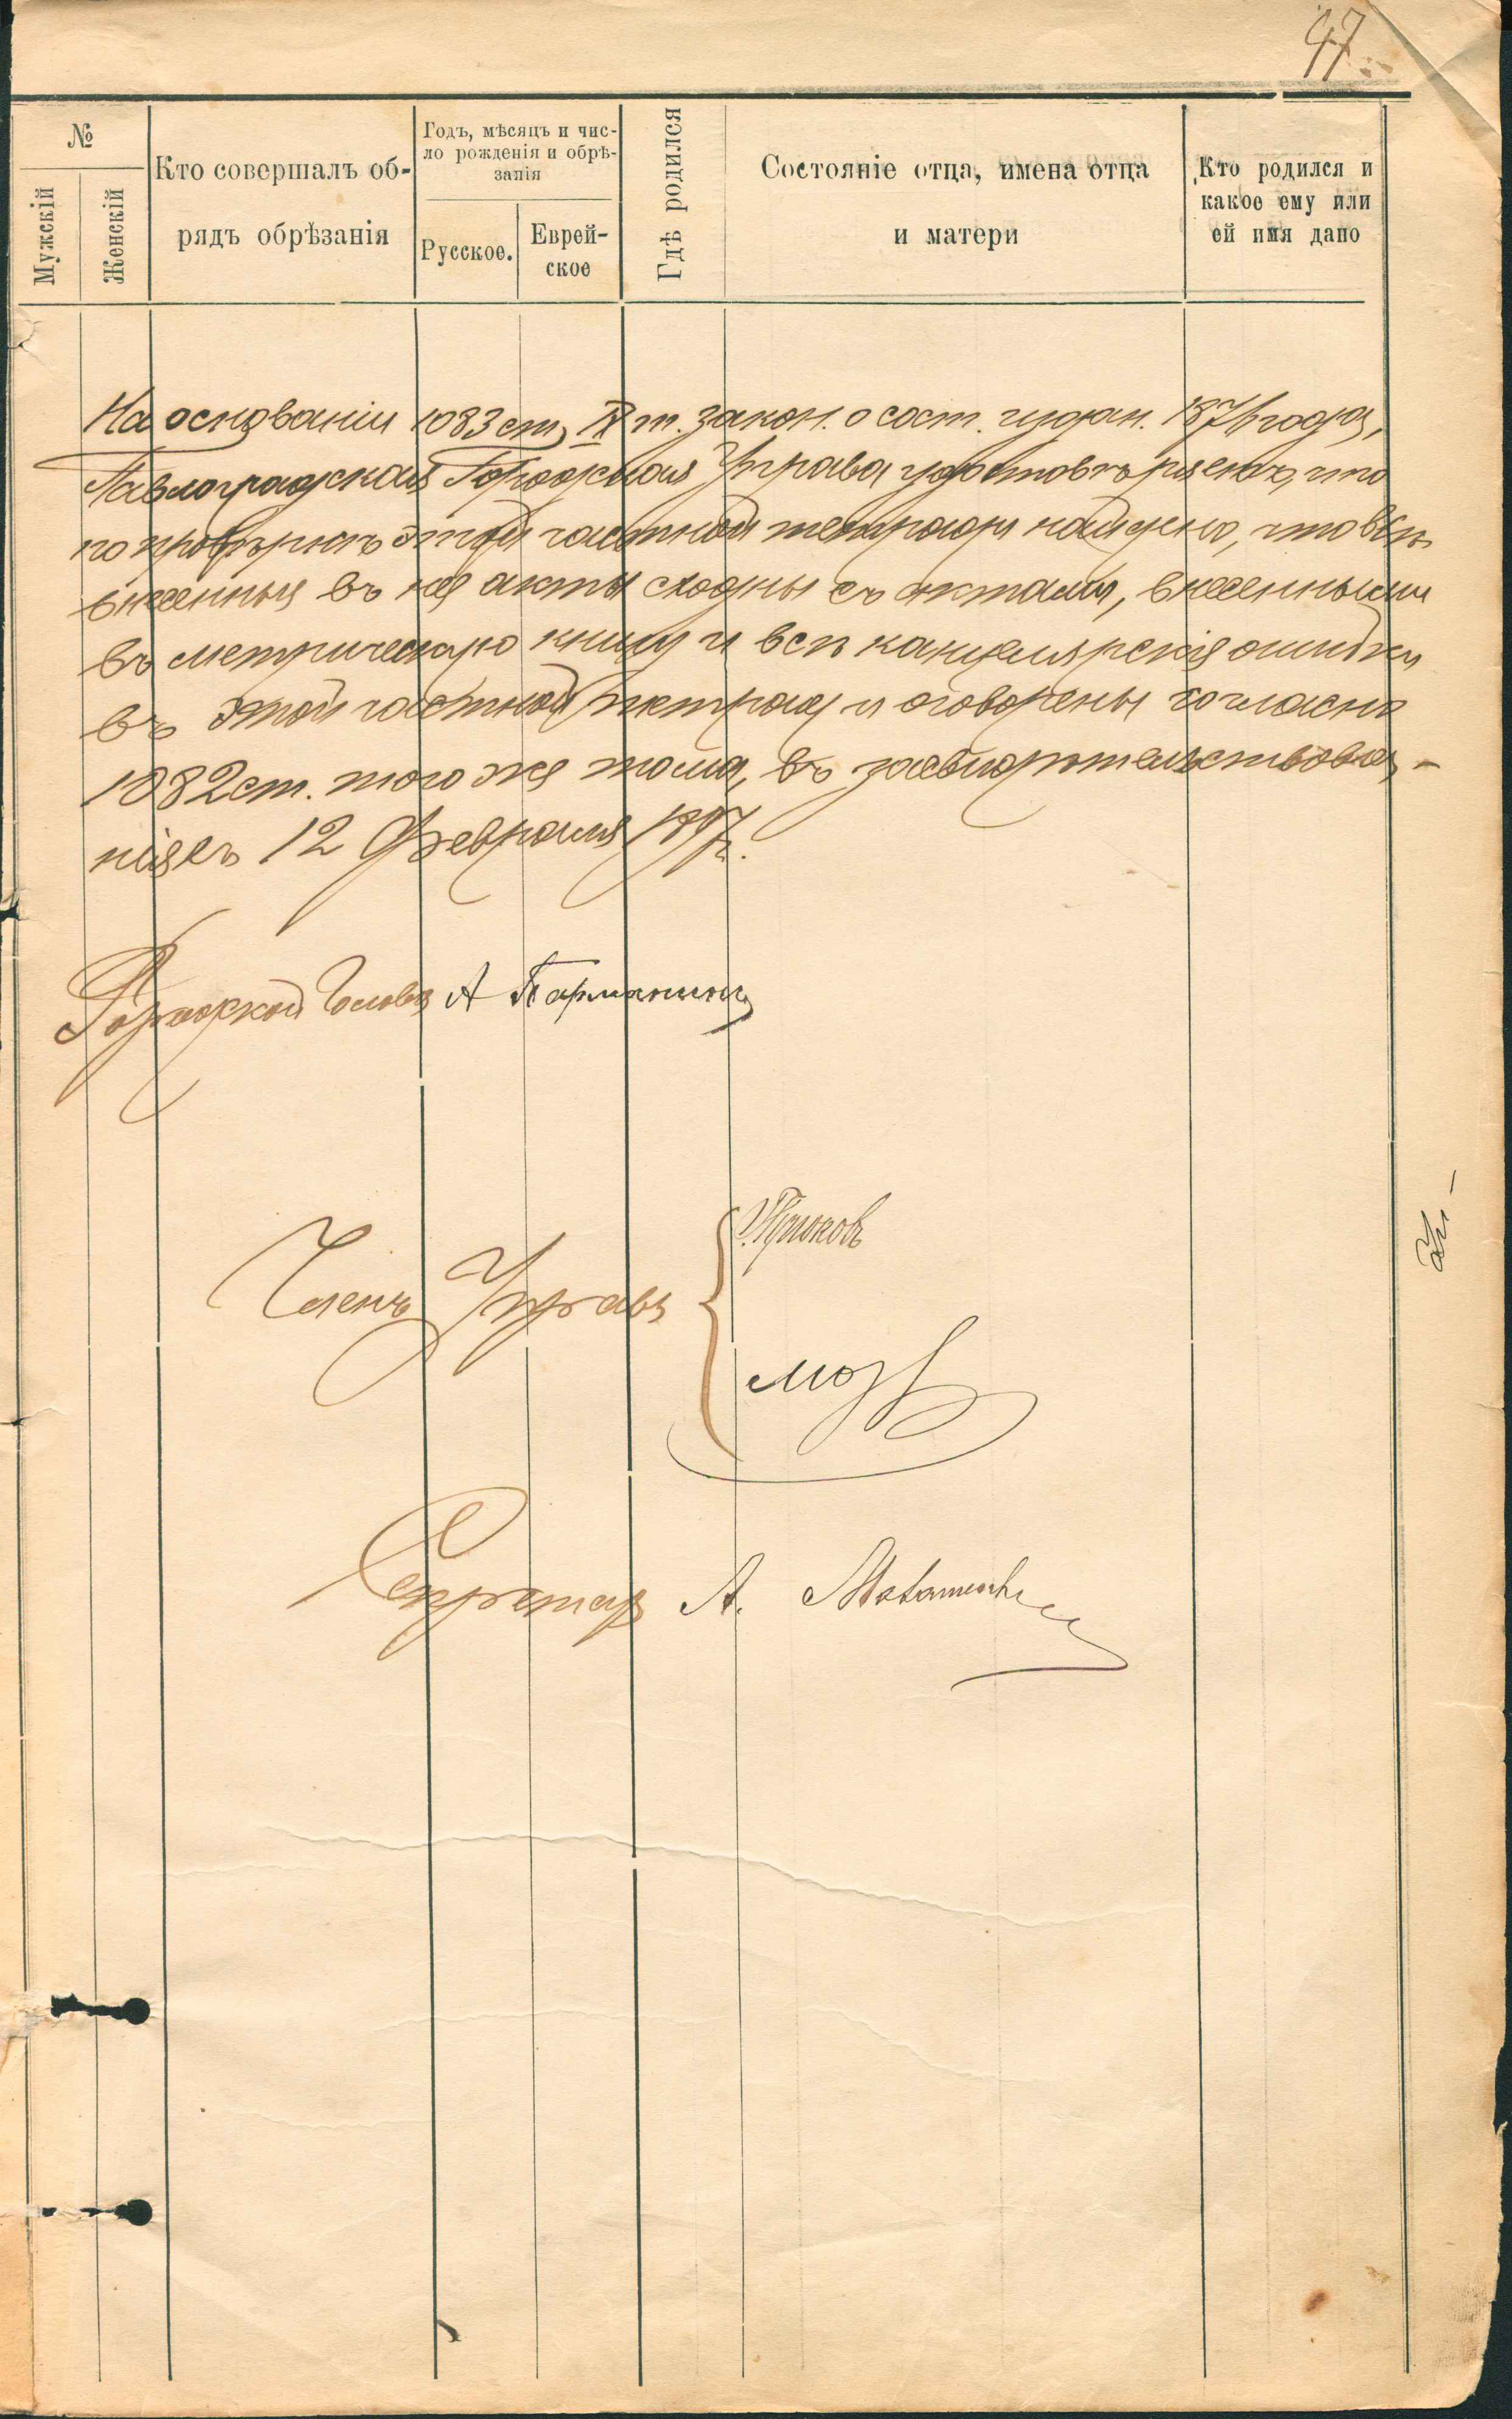 47
№
Мужскій
Женскій
Кто совершалъ об-
рядъ обрѣзанія
Годъ, мѣсяцъ и чис-
ло рожденія и обрѣ-
занія
Русское.
Еврей-
ское
Гдѣ родился
Состояніе отца, имена отца
и матери
Кто родился и
какое ему или
ей имя дано
На основаніи 1083 ст. IX т. закон. о сост. издан. 1876 года,
Павлоградская Городская Управа удостовѣряетъ, что
по провѣркѣ этой частной тетради найдено, что всѣ
внесенныя въ нея акты сходны съ актами, внесенными
въ метрическую книгу и всѣ канцелярскія ошибки
въ этой частной тетради оговорены согласно
1082 ст. того же тома, въ засвидѣтельствова-
ніяхъ 12 Февраля 1897 г.
Городской Голова А
Членъ Управы
Секретарь А.